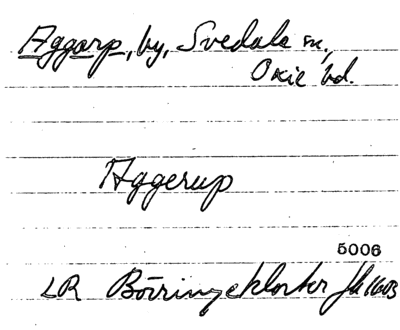 Aggarp, by, Svedala sn,
Oxie hd.
Aggerup
5006
LR Börringekloster Jb 1603